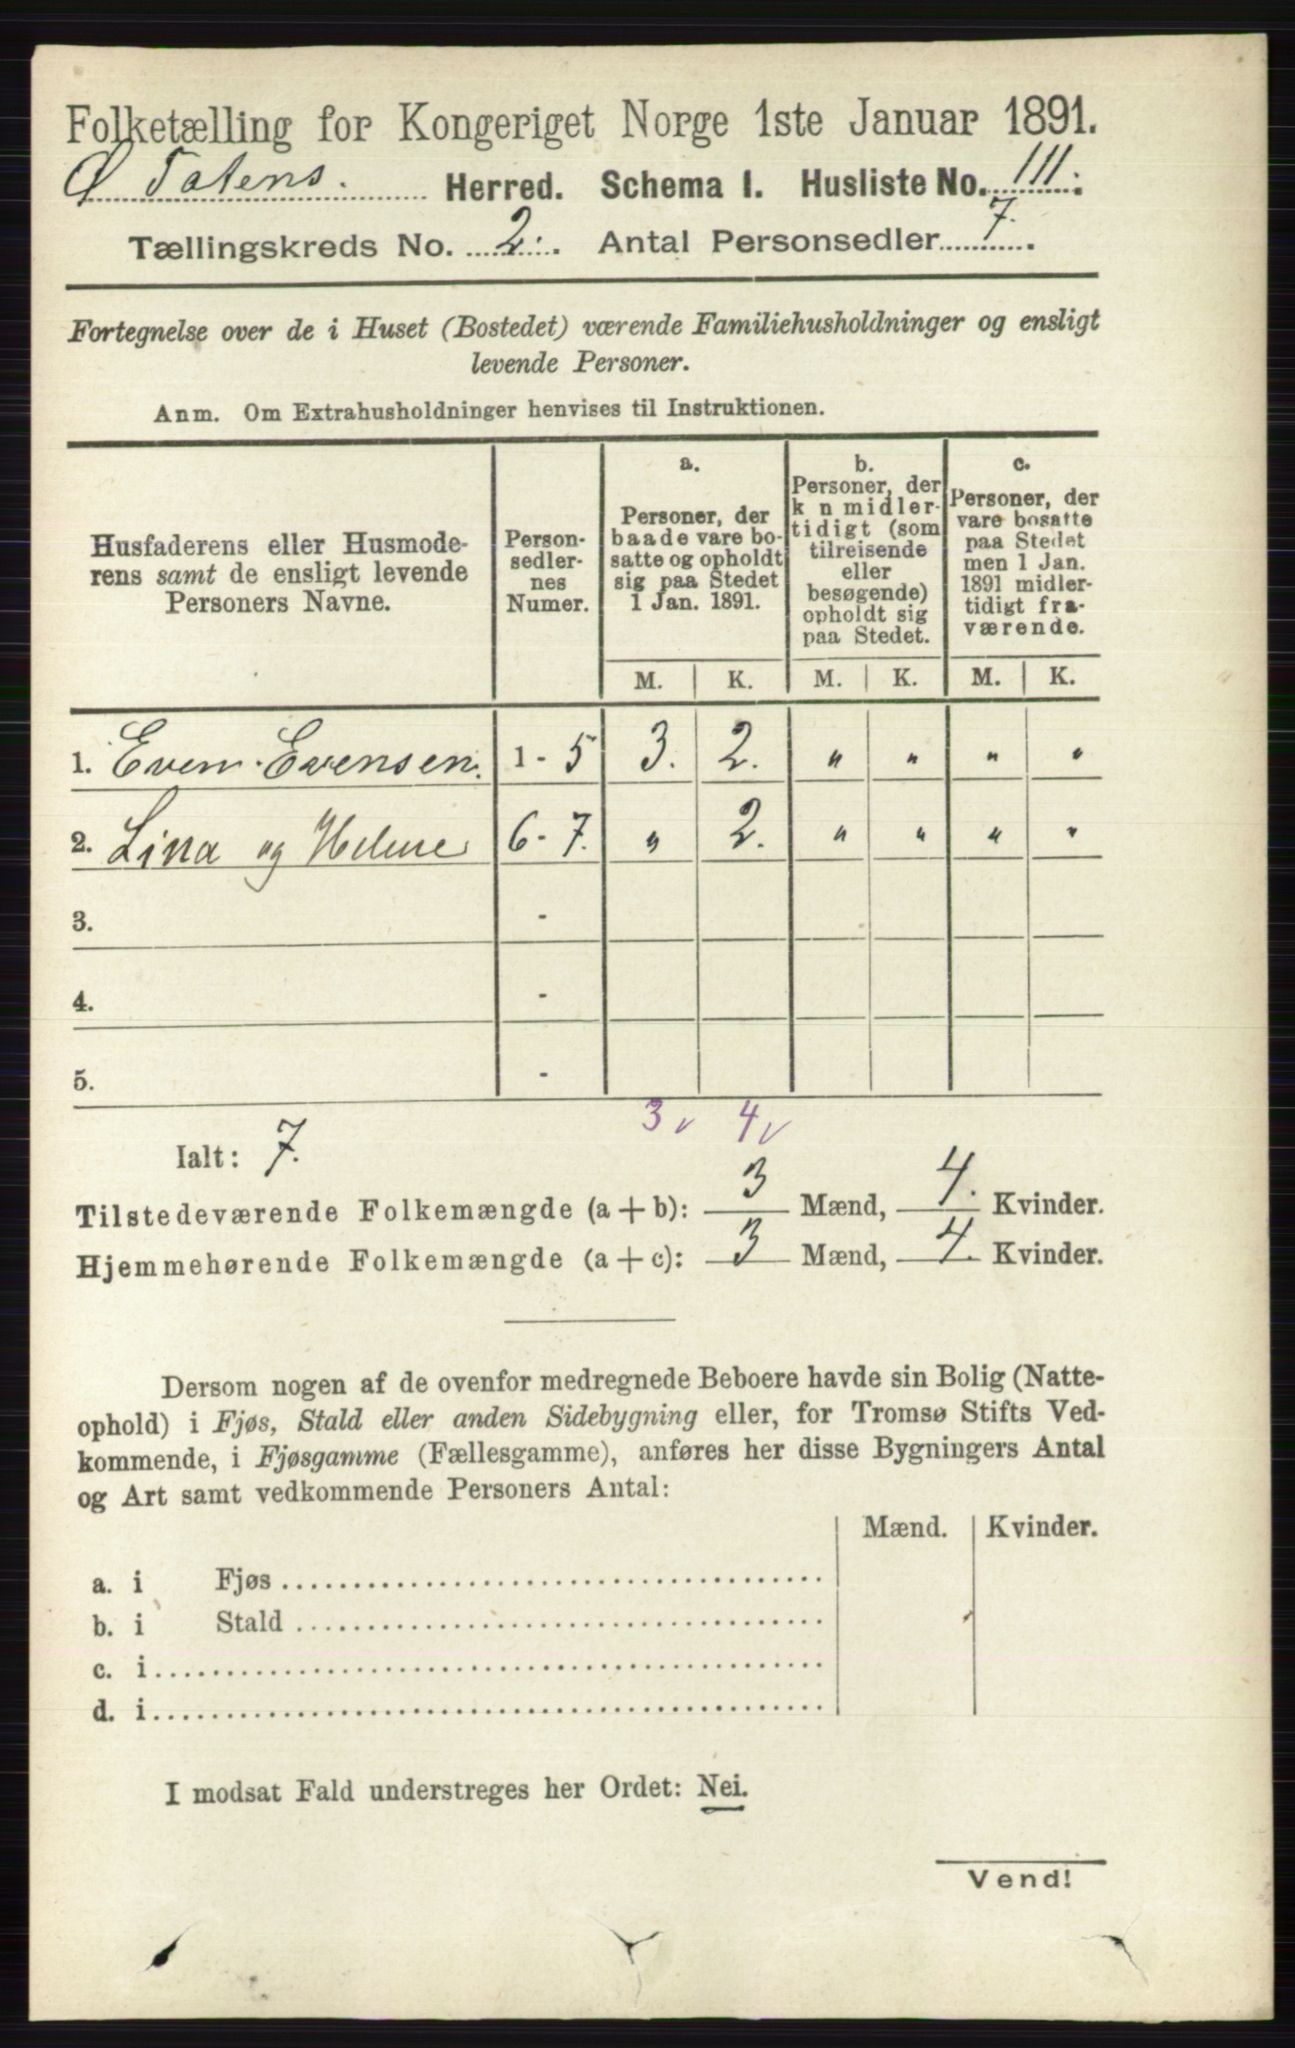 Folketælling for Kongeriget Norge 1ste Januar 1891.
Ø Totens. Herred. Schema I. Husliste No. 111.
Tællingskreds No. 2. Antal Personsedler 7.
Fortegnelse over de i Huset (Bostedet) værende Familiehusholdninger og ensligt
levende Personer.
Anm. Om Extrahusholdninger henvises til Instruktionen.
Husfaderens eller Husmode-
rens samt de ensligt levende
Personers Navne.
Person-
sedler-
nes
Numer.
a.
Personer, der
baade vare bo-
satte og opholdt
sig paa Stedet
1 Jan. 1891.
b.
Personer, der
k n midler-
tidigt (som
tilreisende
eller
besøgende)
opholdt sig
paa Stedet.
c.
Personer, der
vare bosatte
paa Stedet
men 1 Jan.
1891 midler-
tidigt fra-
værende.
M. K. M. K. M. K.
1. Even Evensen. 1 - 5 3. 2. " " " "
2. Lina og Helene 6 - 7. " 2. " " " "
3. -
4. -
5. -
3 v 4 v
Ialt: 7.
Tilstedeværende Folkemængde (a + b): 3 Mænd, 4. Kvinder.
Hjemmehørende Folkemængde (a + c): 3 Mænd, 4. Kvinder.
Dersom nogen af de ovenfor medregnede Beboere havde sin Bolig (Natte-
ophold) i Fjøs, Stald eller anden Sidebygning eller, for Tromsø Stifts Ved-
kommende, i Fjøsgamme (Fællesgamme), anføres her disse Bygningers Antal
og Art samt vedkommende Personers Antal:
Mænd. Kvinder.
a. i Fjøs
b. i Stald
c. i
d. i
I modsat Fald understreges her Ordet: Nei.
Vend!